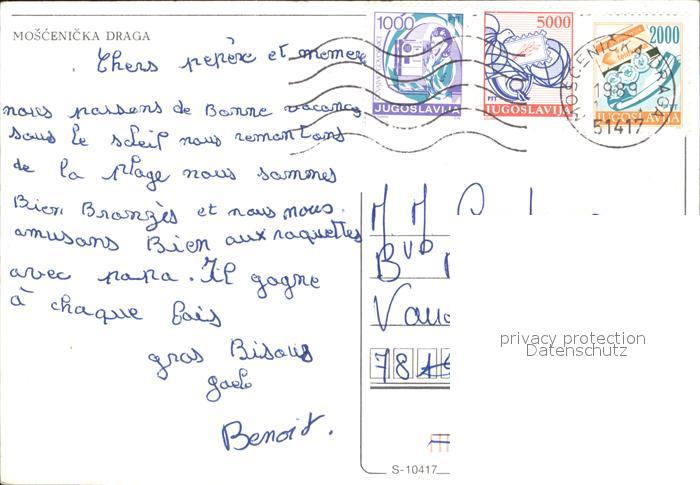 MOŠĆENIČKA DRAGA
1000
PTT
JUGOSLAVIJA
5000
PTT
JUGOSLAVIJA
2000
PTT
JUGOSLAVIJA
MOŠĆENIČKA DRAGA
1989
51417
Chers pepère et memere
nous passons de Bonne vacances
sous le soleil nous remontons
de la plage nous sommes
Bien Bronzès et nous nous
amusons Bien aux raquettes
avec papa. Il gagne
à chaque fois
gros Bisous
gaele
Benoit.
M M
Bvd
78
privacy protection
Datenschutz
S-10417